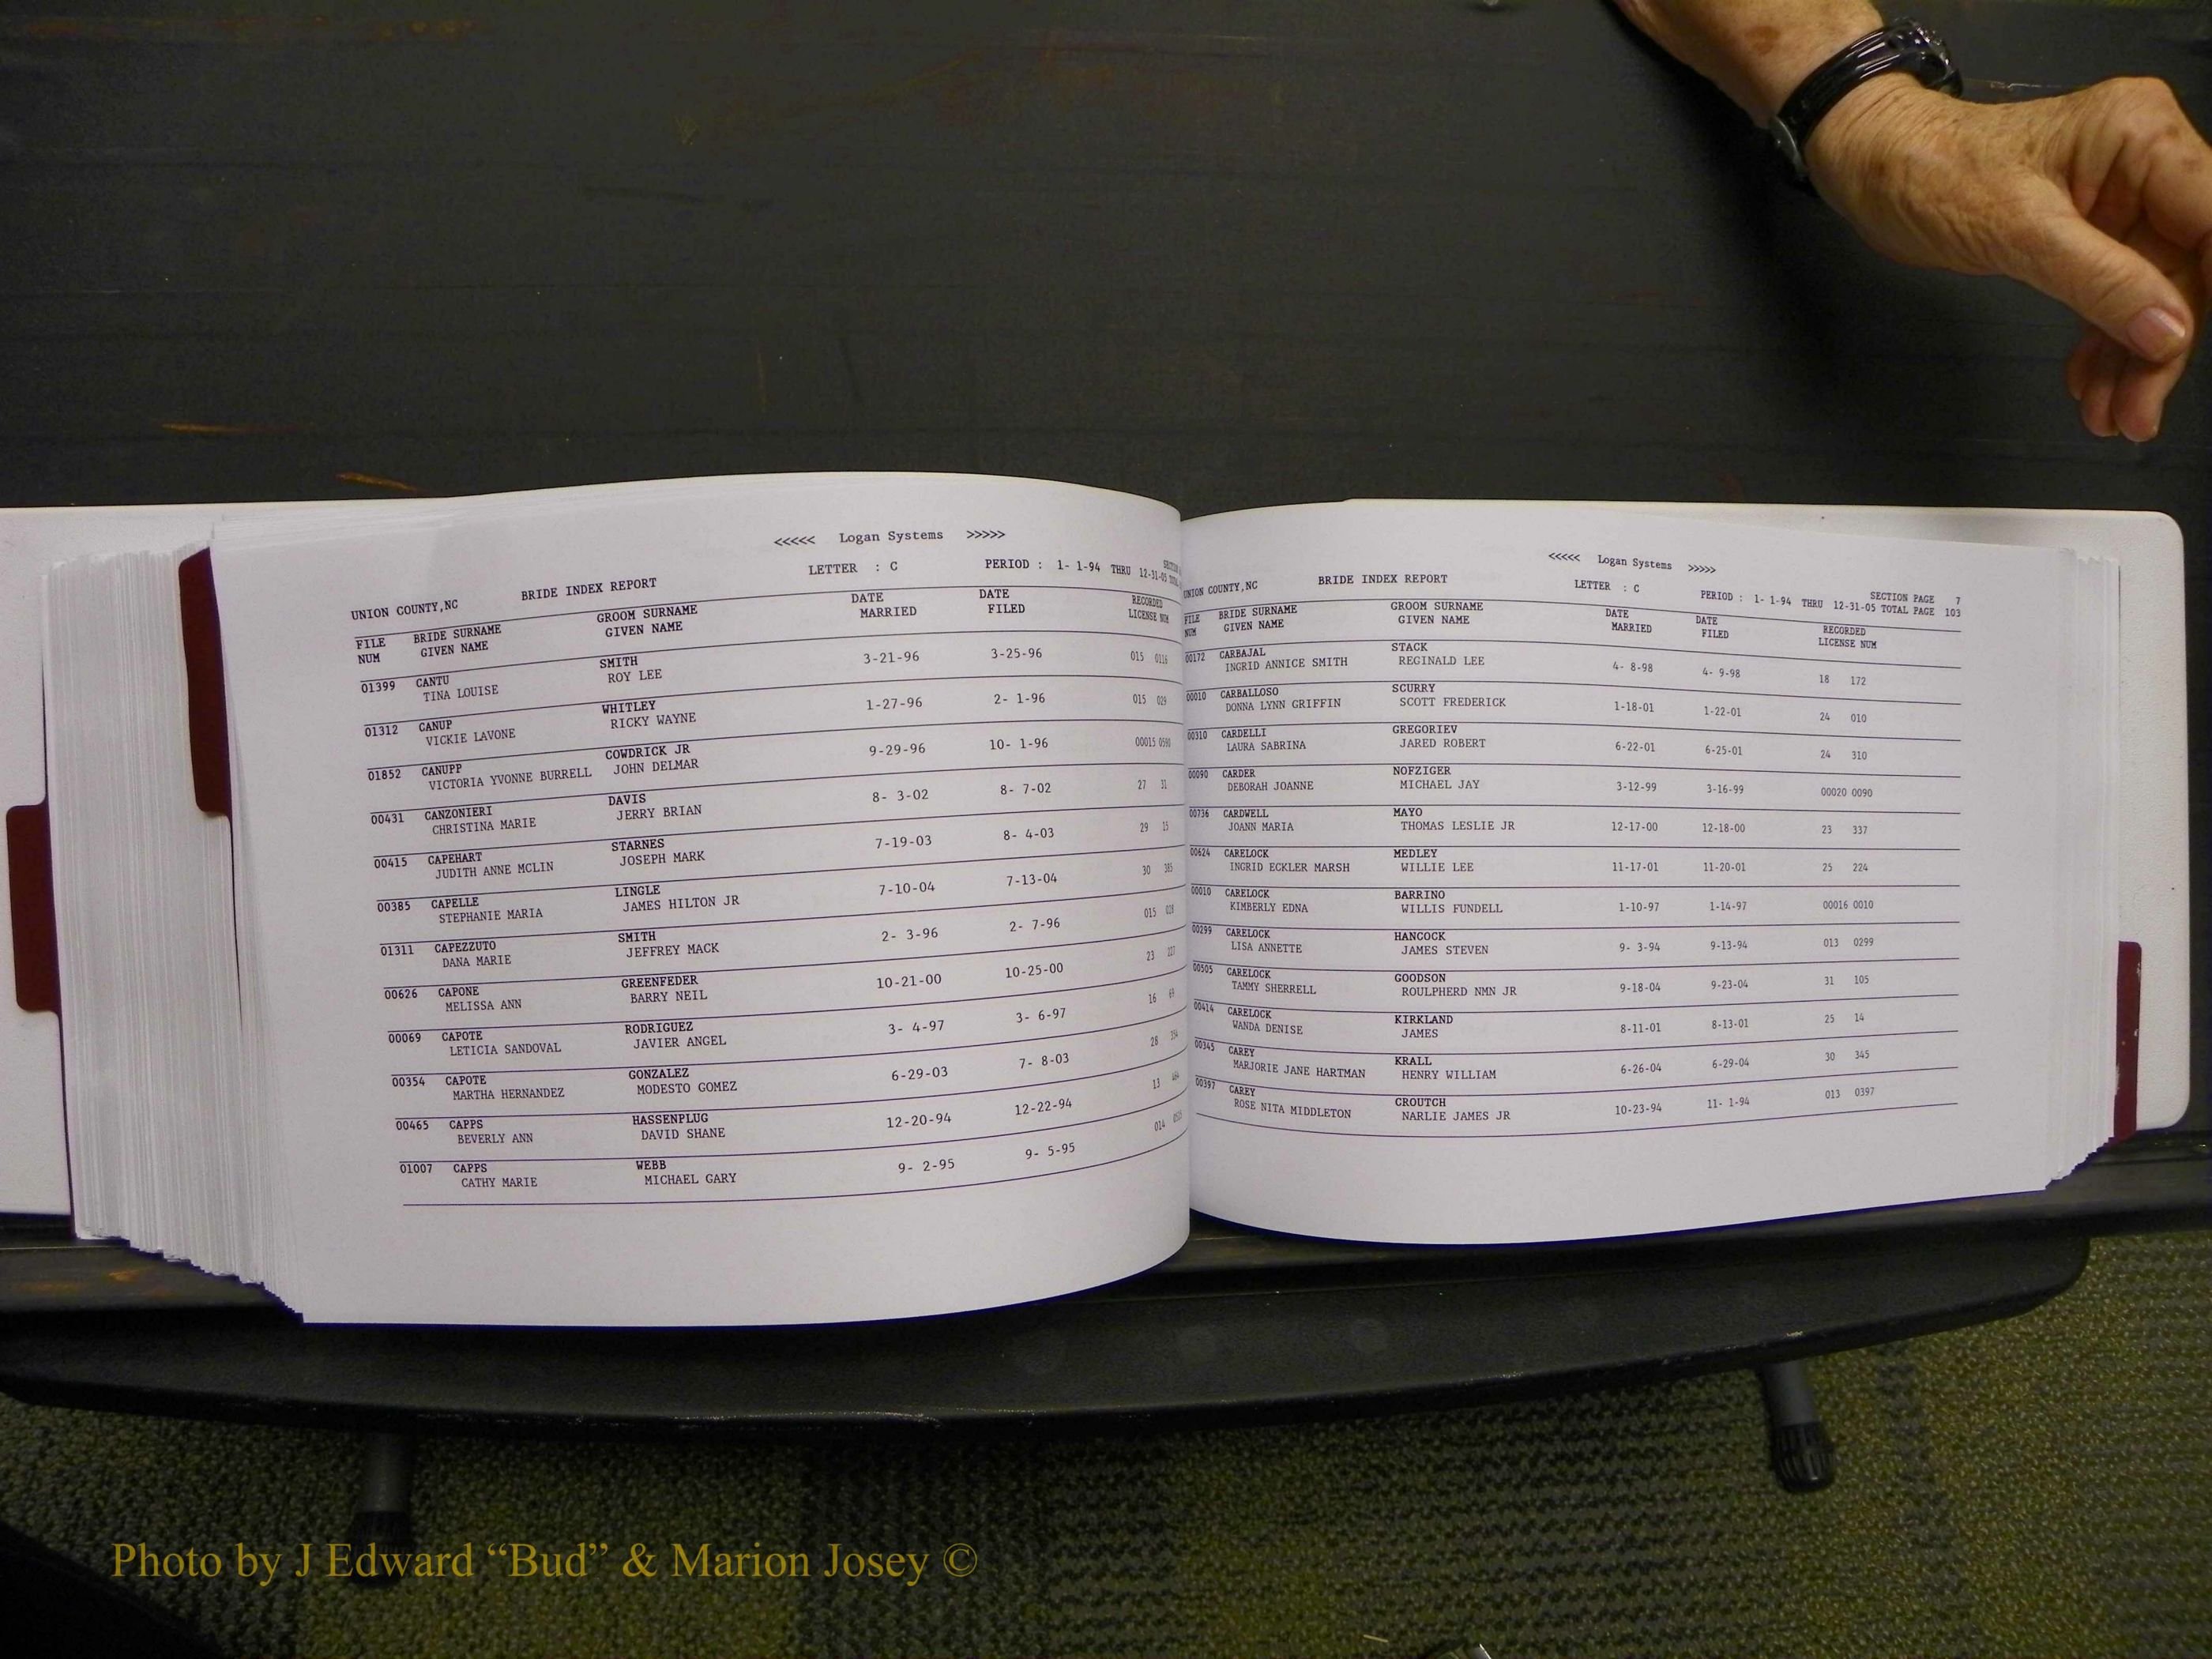 <<<<< Logan Systems >>>>>
UNION COUNTY,NC BRIDE INDEX REPORT LETTER : C PERIOD : 1- 1-94 THRU 12-31-05
FILE BRIDE SURNAME GROOM SURNAME DATE DATE RECORDED
NUM GIVEN NAME GIVEN NAME MARRIED FILED LICENSE NUM
01399 CANTU SMITH 3-21-96 3-25-96 015 0116
TINA LOUISE ROY LEE
01312 CANUP WHITLEY 1-27-96 2- 1-96 015 029
VICKIE LAVONE RICKY WAYNE
01852 CANUPP COWDRICK JR 9-29-96 10- 1-96 00015
VICTORIA YVONNE BURRELL JOHN DELMAR
00431 CANZONIERI DAVIS 8- 3-02 8- 7-02 27 31
CHRISTINA MARIE JERRY BRIAN
00415 CAPEHART STARNES 7-19-03 8- 4-03 29 15
JUDITH ANNE MCLIN JOSEPH MARK
00385 CAPELLE LINGLE 7-10-04 7-13-04 30 385
STEPHANIE MARIA JAMES HILTON JR
01311 CAPEZZUTO SMITH 2- 3-96 2- 7-96 015 028
DANA MARIE JEFFREY MACK
00626 CAPONE GREENFEDER 10-21-00 10-25-00 23 227
MELISSA ANN BARRY NEIL
00069 CAPOTE RODRIGUEZ 3- 4-97 3- 6-97 16 69
LETICIA SANDOVAL JAVIER ANGEL
00354 CAPOTE GONZALEZ 6-29-03 7- 8-03 28 354
MARTHA HERNANDEZ MODESTO GOMEZ
00465 CAPPS HASSENPLUG 12-20-94 12-22-94 13
BEVERLY ANN DAVID SHANE
01007 CAPPS WEBB 9- 2-95 9- 5-95 014
CATHY MARIE MICHAEL GARY
<<<<< Logan Systems >>>>>
UNION COUNTY,NC BRIDE INDEX REPORT LETTER : C SECTION PAGE 7
PERIOD : 1- 1-94 THRU 12-31-05 TOTAL PAGE 103
FILE BRIDE SURNAME GROOM SURNAME DATE DATE RECORDED
NUM GIVEN NAME GIVEN NAME MARRIED FILED LICENSE NUM
00172 CARBAJAL STACK 4- 8-98 4- 9-98 18 172
INGRID ANNICE SMITH REGINALD LEE
00010 CARBALLOSO SCURRY 1-18-01 1-22-01 24 010
DONNA LYNN GRIFFIN SCOTT FREDERICK
00310 CARDELLI GREGORIEV 6-22-01 6-25-01 24 310
LAURA SABRINA JARED ROBERT
00090 CARDER NOFZIGER 3-12-99 3-16-99 00020 0090
DEBORAH JOANNE MICHAEL JAY
00736 CARDWELL MAYO 12-17-00 12-18-00 23 337
JOANN MARIA THOMAS LESLIE JR
00624 CARELOCK MEDLEY 11-17-01 11-20-01 25 224
INGRID ECKLER MARSH WILLIE LEE
00010 CARELOCK BARRINO 1-10-97 1-14-97 00016 0010
KIMBERLY EDNA WILLIS FUNDELL
00299 CARELOCK HANCOCK 9- 3-94 9-13-94 013 0299
LISA ANNETTE JAMES STEVEN
00505 CARELOCK GOODSON 9-18-04 9-23-04 31 105
TAMMY SHERRELL ROULPHERD NMN JR
00414 CARELOCK KIRKLAND 8-11-01 8-13-01 25 14
WANDA DENISE JAMES
00345 CAREY KRALL 6-26-04 6-29-04 30 345
MARJORIE JANE HARTMAN HENRY WILLIAM
00397 CAREY CROUTCH 10-23-94 11- 1-94 013 0397
ROSE NITA MIDDLETON NARLIE JAMES JR
Photo by J Edward “Bud” & Marion Josey ©